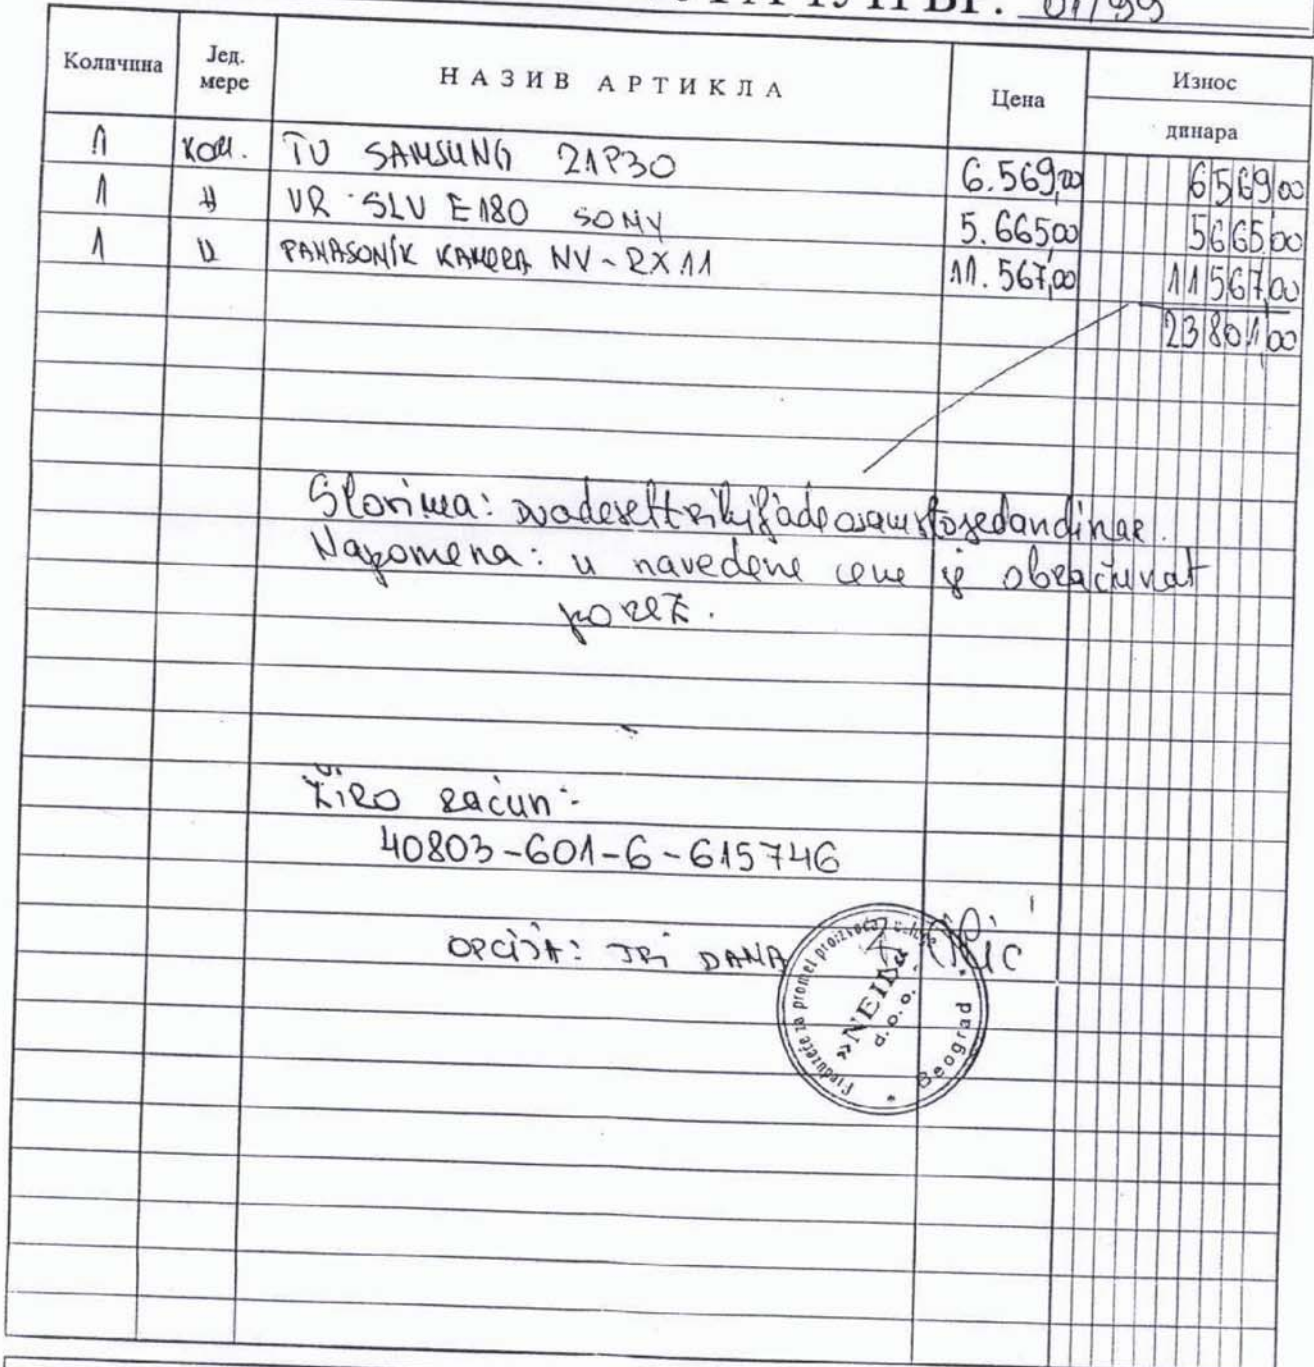 БР. 01/99
Количина Јед. мере НАЗИВ АРТИКЛА Цена Износ
динара
1 ком. TV SAMSUNG 21P30 6.569,00 6569,00
1 " VR SLV E180 SONY 5.665,00 5665,00
1 " PANASONIK KAMERA NV-RX11 11.567,00 11567,00
23801,00
Slovima: dvadesettrihiljadeosamstojedandinar.
Napomena: u navedene cene je obračunat
porez.
Žiro račun:
40803-601-6-615746
OPCIJA: TRI DANA
Preduzeće za promet proizvoda i usluge
»NEID«
d. o. o.
Beograd